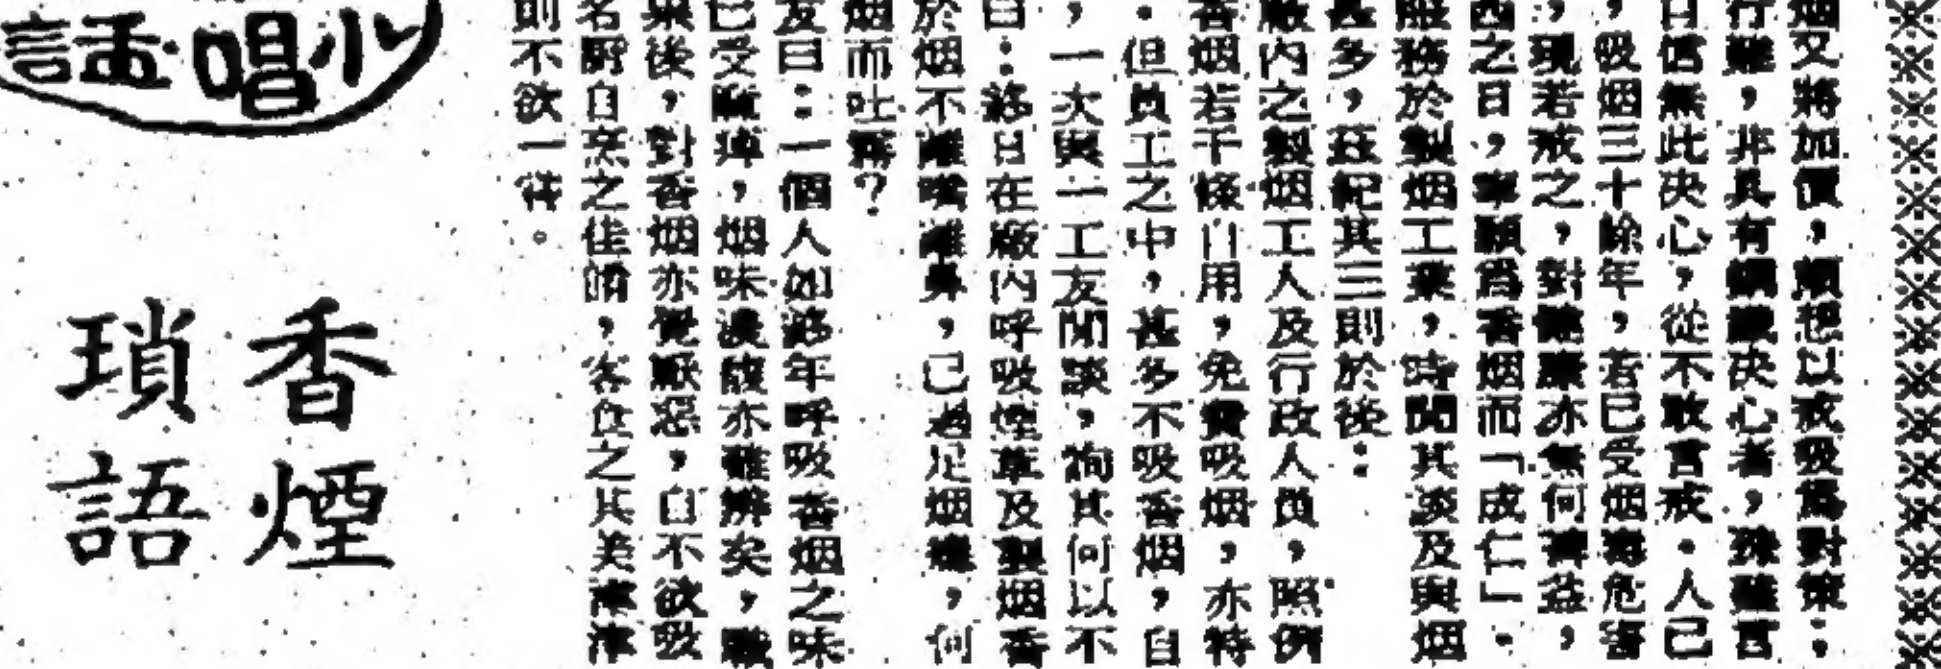 烟又將加價，頗想以戒吸爲對策：
行難，非具有決心者，殊難言
日信無此決心，從不敢言戒．人已
，吸烟三十餘年，若已受烟毒危害
，現若戒之，對健康亦無何裨益，
西之日，寧願爲香烟而「成仁」．
服務於製烟工業，時聞其談及與烟
甚多，茲紀其三則於後：
廠內之製烟工人及行政人員，照例
香烟若干條自用，免費吸烟，亦特
．但員工之中，甚多不吸香烟，自
，一次與一工友閒談，詢其何以不
曰：終日在廠內呼吸煙草及製烟香
於烟不離嘴離鼻，已過足烟癮，何
烟而吐霧？
友曰：一個人如終年呼吸香烟之味
已受麻痺，烟味濃馥亦難辨矣，職
業後，對香烟亦覺厭惡，自不欲吸
名廚自烹之佳餚，客食之其美津津
則不欲一嘗。
小唱孟話
香煙
瑣語